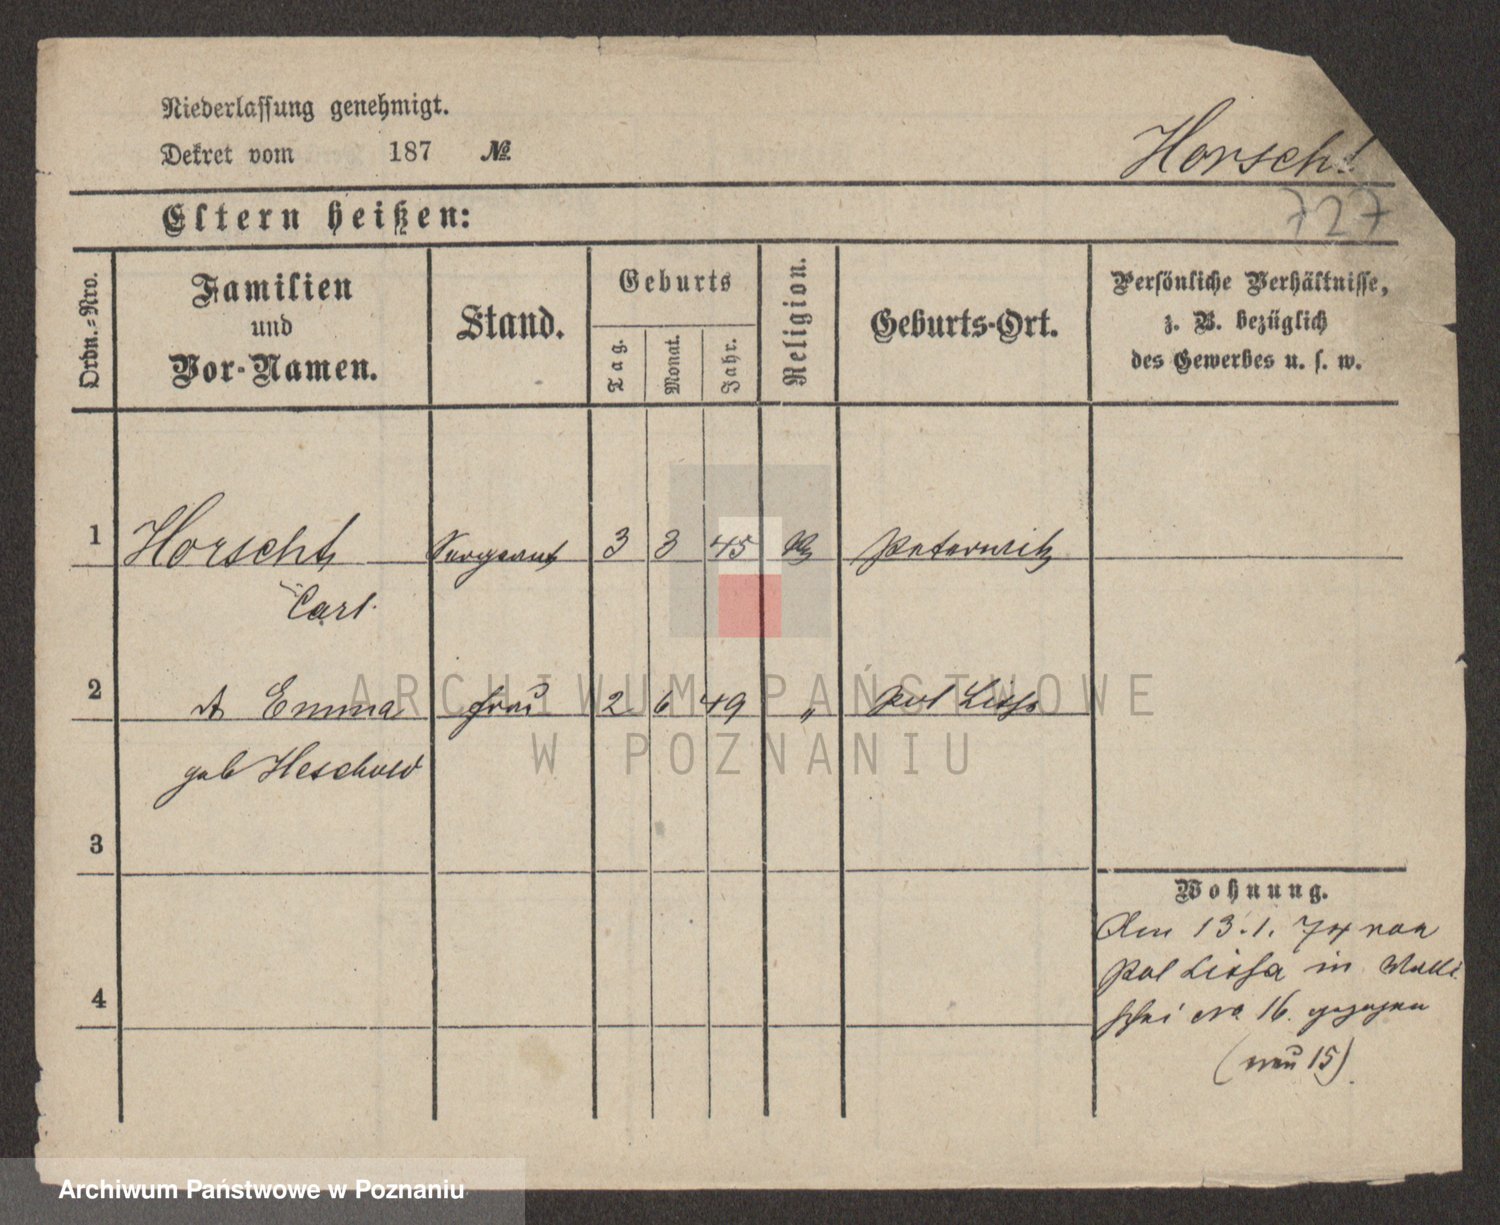 Niederlassung genehmigt.
Dekret vom 187 №
Horscht
727
Eltern heißen:
Ordn.-Nro.
Familien
und
Vor-Namen.
Stand.
Geburts
Tag.
Monat.
Jahr.
Religion.
Geburts-Ort.
Persönliche Verhältnisse,
z. B. bezüglich
des Gewerbes u. s. w.
1 Horscht Sergeant 3 3 45 Peterwitz
Carl.
2 Emma Frau 2 6 49 " Pol Lissa
geb Heschold
3
4
Wohnung.
Am 13.1. 74 von
Pol Lissa in Walli
schei No 16. gezogen
(neu 15).
ARCHIWUM PAŃSTWOWE
W POZNANIU
Archiwum Państwowe w Poznaniu